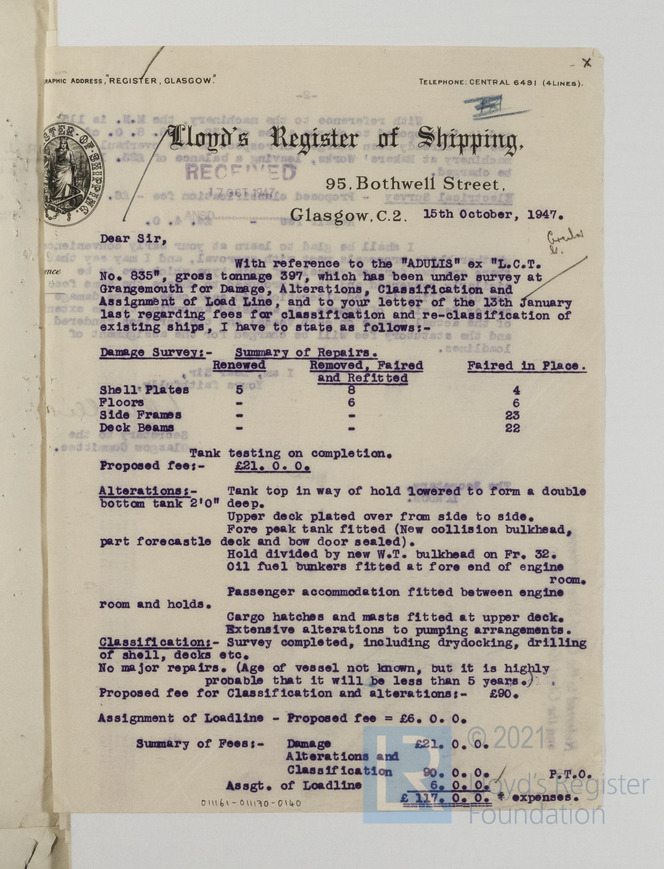 RAPHIC ADDRESS, "REGISTER, GLASGOW."
TELEPHONE: CENTRAL 6491 (4 LINES).
Lloyd's Register of Shipping,
RECEIVED
17 OCT 1947
95, Bothwell Street,
Glasgow, C.2. 15th October, 1947.
Dear Sir,
With reference to the "ADULIS" ex "L.C.T.
No. 835", gross tonnage 397, which has been under survey at
Grangemouth for Damage, Alterations, Classification and
Assignment of Load Line, and to your letter of the 13th January
last regarding fees for classification and re-classification of
existing ships, I have to state as follows:-
Damage Survey:- Summary of Repairs.
Renewed Removed, Faired and Refitted Faired in Place.
Shell Plates 5 8 4
Floors - 6 6
Side Frames - - 23
Deck Beams - - 22
Tank testing on completion.
Proposed fee:- £21. 0. 0.
Alterations:- Tank top in way of hold lowered to form a double
bottom tank 2'0" deep.
Upper deck plated over from side to side.
Fore peak tank fitted (New collision bulkhead,
part forecastle deck and bow door sealed).
Hold divided by new W.T. bulkhead on Fr. 32.
Oil fuel bunkers fitted at fore end of engine
room.
Passenger accommodation fitted between engine
room and holds.
Cargo hatches and masts fitted at upper deck.
Extensive alterations to pumping arrangements.
Classification:- Survey completed, including drydocking, drilling
of shell, decks etc.
No major repairs. (Age of vessel not known, but it is highly
probable that it will be less than 5 years.)
Proposed fee for Classification and alterations:- £90.
Assignment of Loadline - Proposed fee = £6. 0. 0.
Summary of Fees:- Damage £21. 0. 0.
Alterations and
Classification 90. 0. 0.
P.T.O.
Assgt. of Loadline 6. 0. 0.
£ 117. 0. 0. + expenses.
011161-011170-0140
© 2021
LR
Lloyd's Register
Foundation